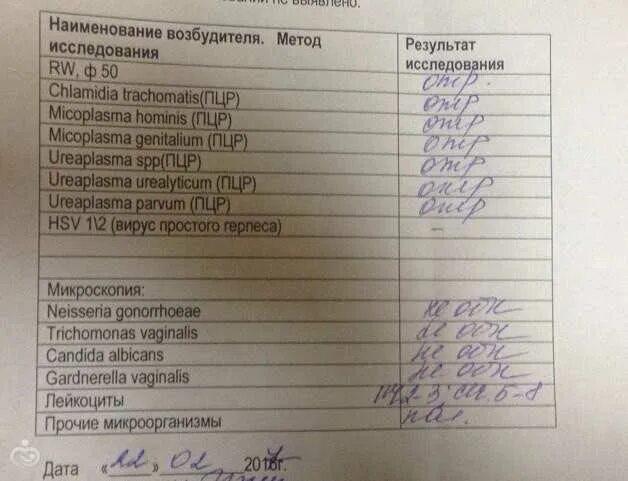 не выявлено.
Наименование возбудителя. Метод исследования Результат исследования
RW, ф 50 отр.
Chlamidia trachomatis(ПЦР) отр
Micoplasma hominis (ПЦР) отр
Micoplasma genitalium (ПЦР) отр
Ureaplasma spp(ПЦР) отр
Ureaplasma urealyticum (ПЦР) отр
Ureaplasma parvum (ПЦР) отр
HSV 1\2 (вирус простого герпеса) –
Микроскопия:
Neisseria gonorrhoeae не обн
Trichomonas vaginalis не обн
Candida albicans не обн
Gardnerella vaginalis не обн
Лейкоциты 2-3 5-8
Прочие микроорганизмы пал.
Дата «22» 02 201г.